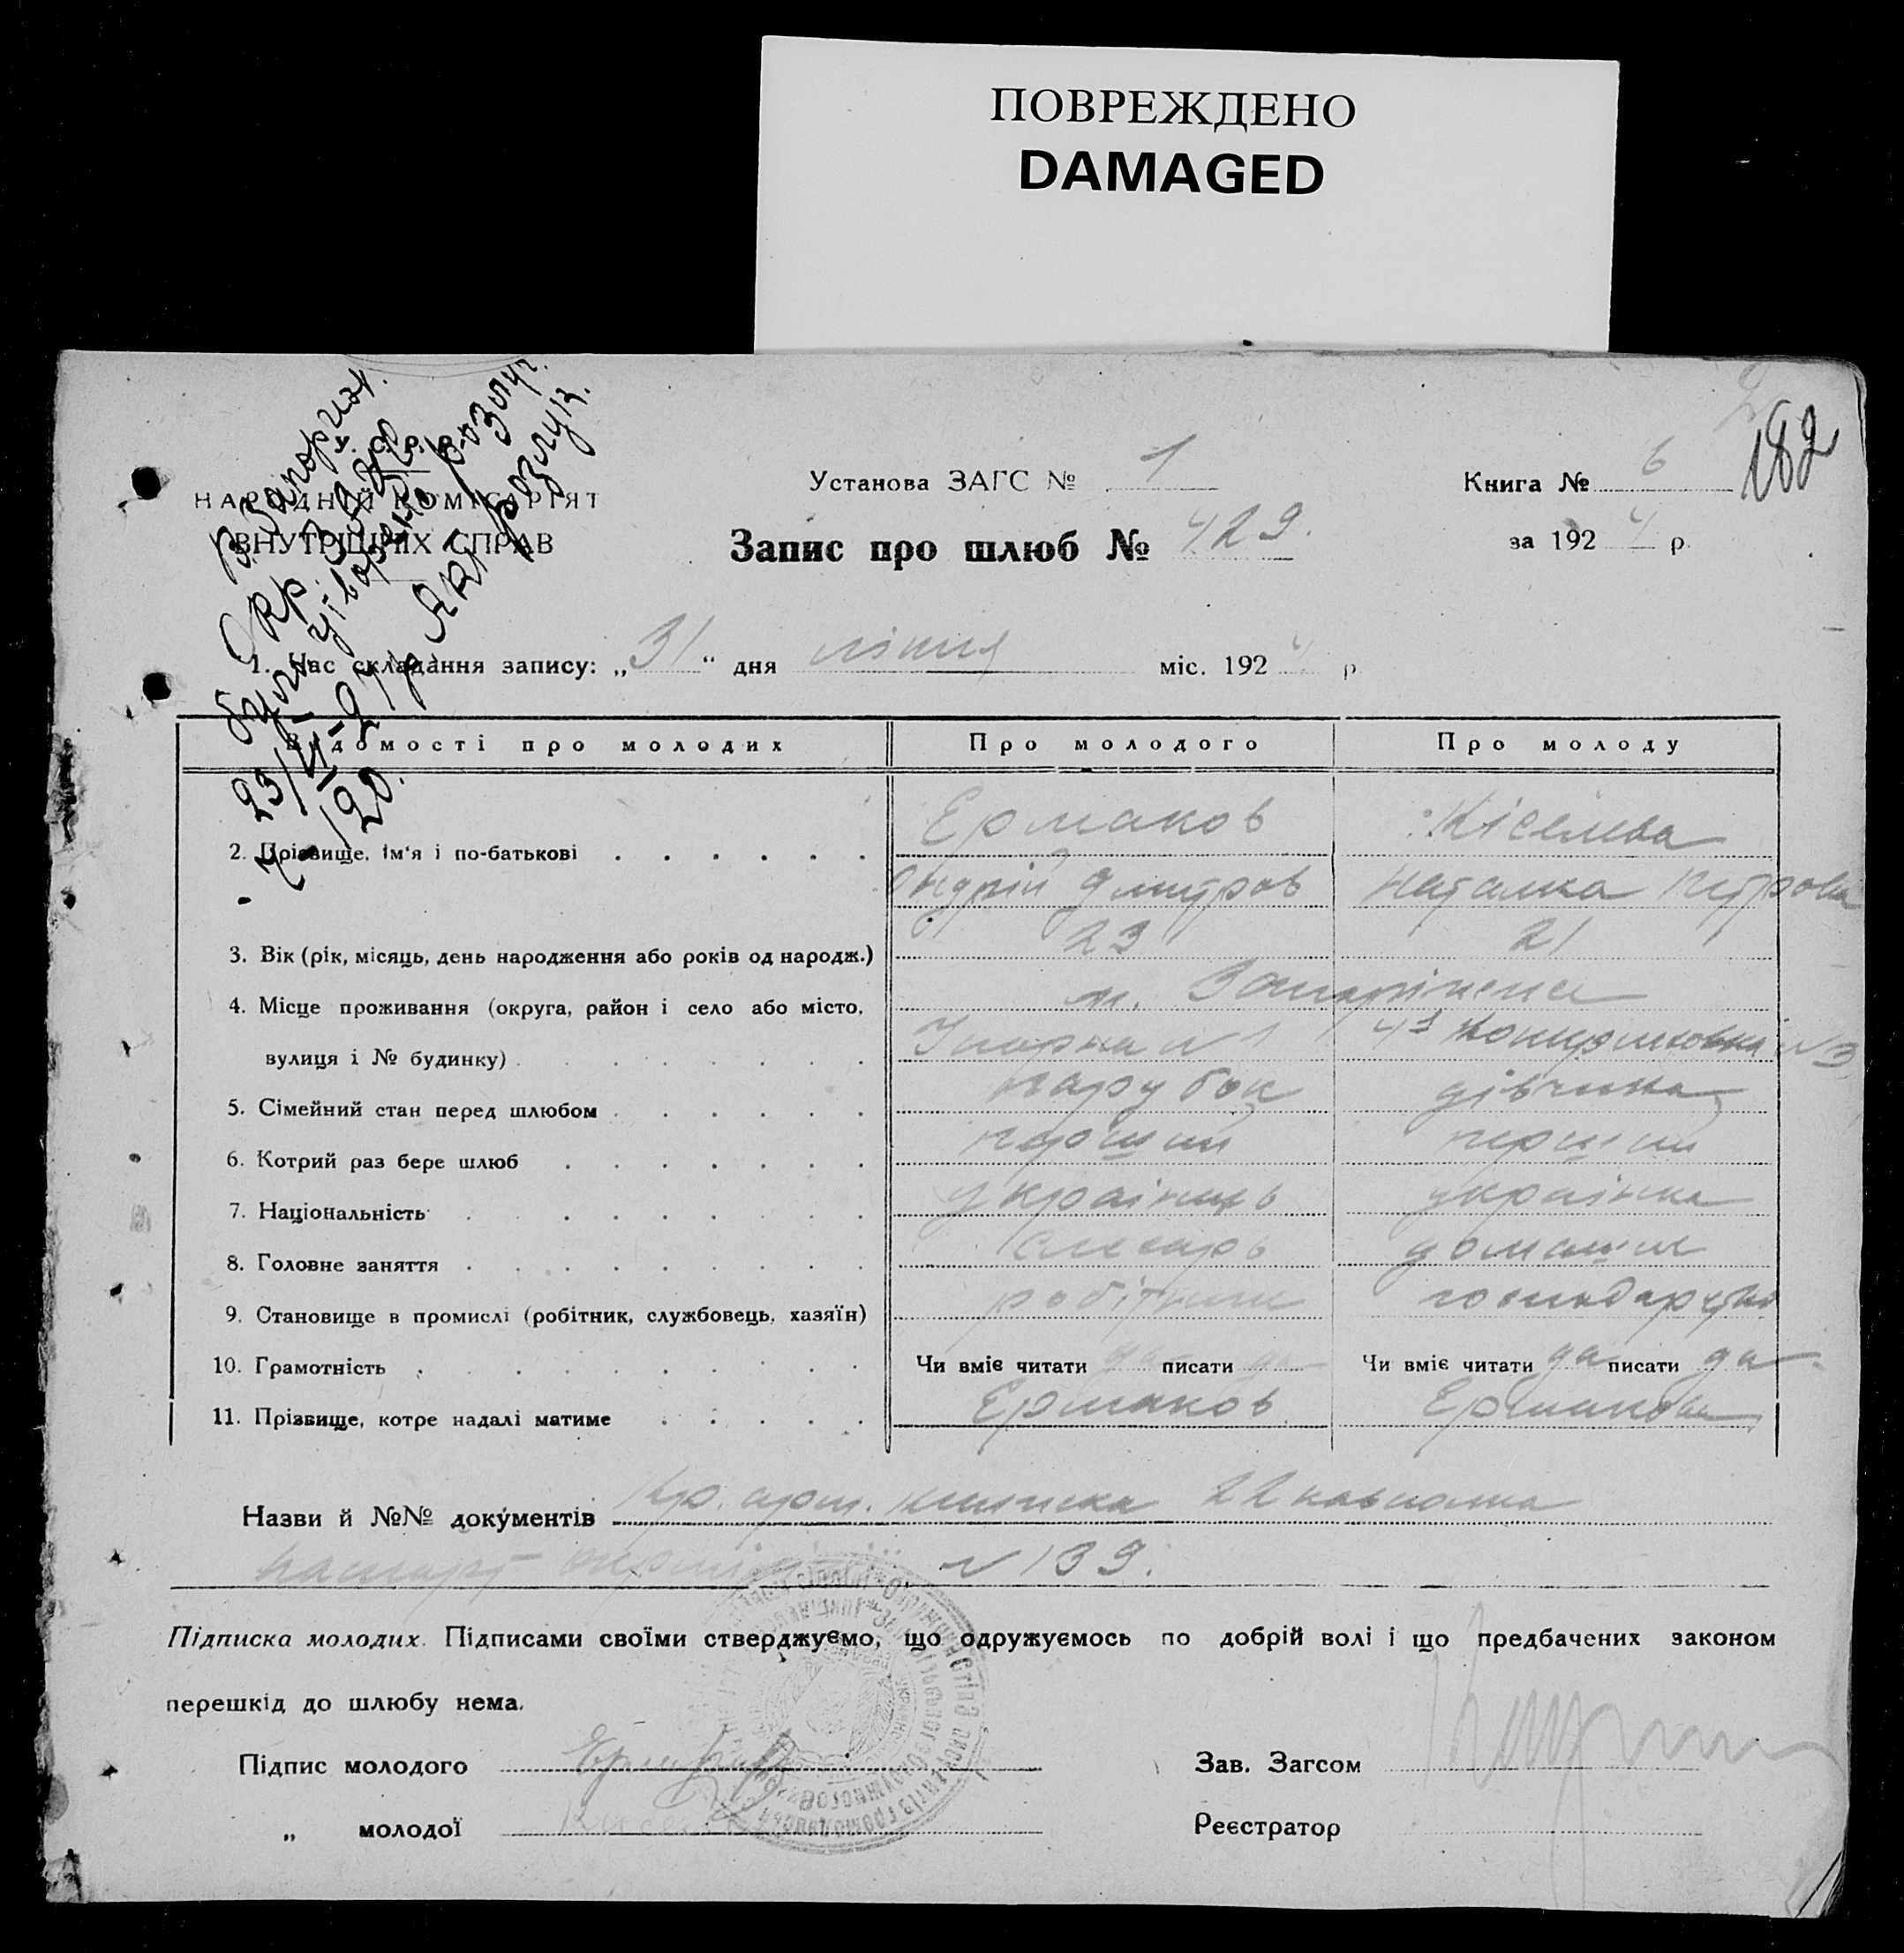 ПОВРЕЖДЕНО
DAMAGED
182
В Запоріж.
Окр. ЗАГСі
було утворено розлуч.
23/VI-27 р. Акт розлуч.
У. С. Р. Р.
НАРОДНІЙ КОМІСАРІЯТ
ВНУТРІШНІХ СПРАВ
Установа ЗАГС № 1
Книга № 6
Запис про шлюб № 429.
за 1924 р.
1. Час складання запису: „31" дня ліпня міс. 1924 р
Відомості про молодих Про молодого Про молоду
Ермаков Кісельова
2. Прізвище, ім'я і по-батькові
Андрій Дмитров Наталка Петрова
3. Вік (рік, місяць, день народження або років од народж.) 23 21
4. Місце проживання (округа, район і село або місто, м. Запоріжжя
вулиця і № будинку) № 1 № 3
5. Сімейний стан перед шлюбом парубок дівчина
6. Котрий раз бере шлюб перший перший
7. Національність українець українка
8. Головне заняття слесарь домашнє
9. Становище в промислі (робітник, службовець, хазяїн) робітник господарство
10. Грамотність Чи вміє читати да писати да Чи вміє читати да писати да
11. Прізвище, котре надалі матиме Ермаков Ермакова
Назви й №№ документів Кр. арм. книжка 22 кавполка
№ 139.
Підписка молодих. Підписами своїми стверджуємо, що одружуємось по добрій волі і що предбачених законом
перешкід до шлюбу нема.
Підпис молодого Ермаков Зав. Загсом
„ молодої Реєстратор